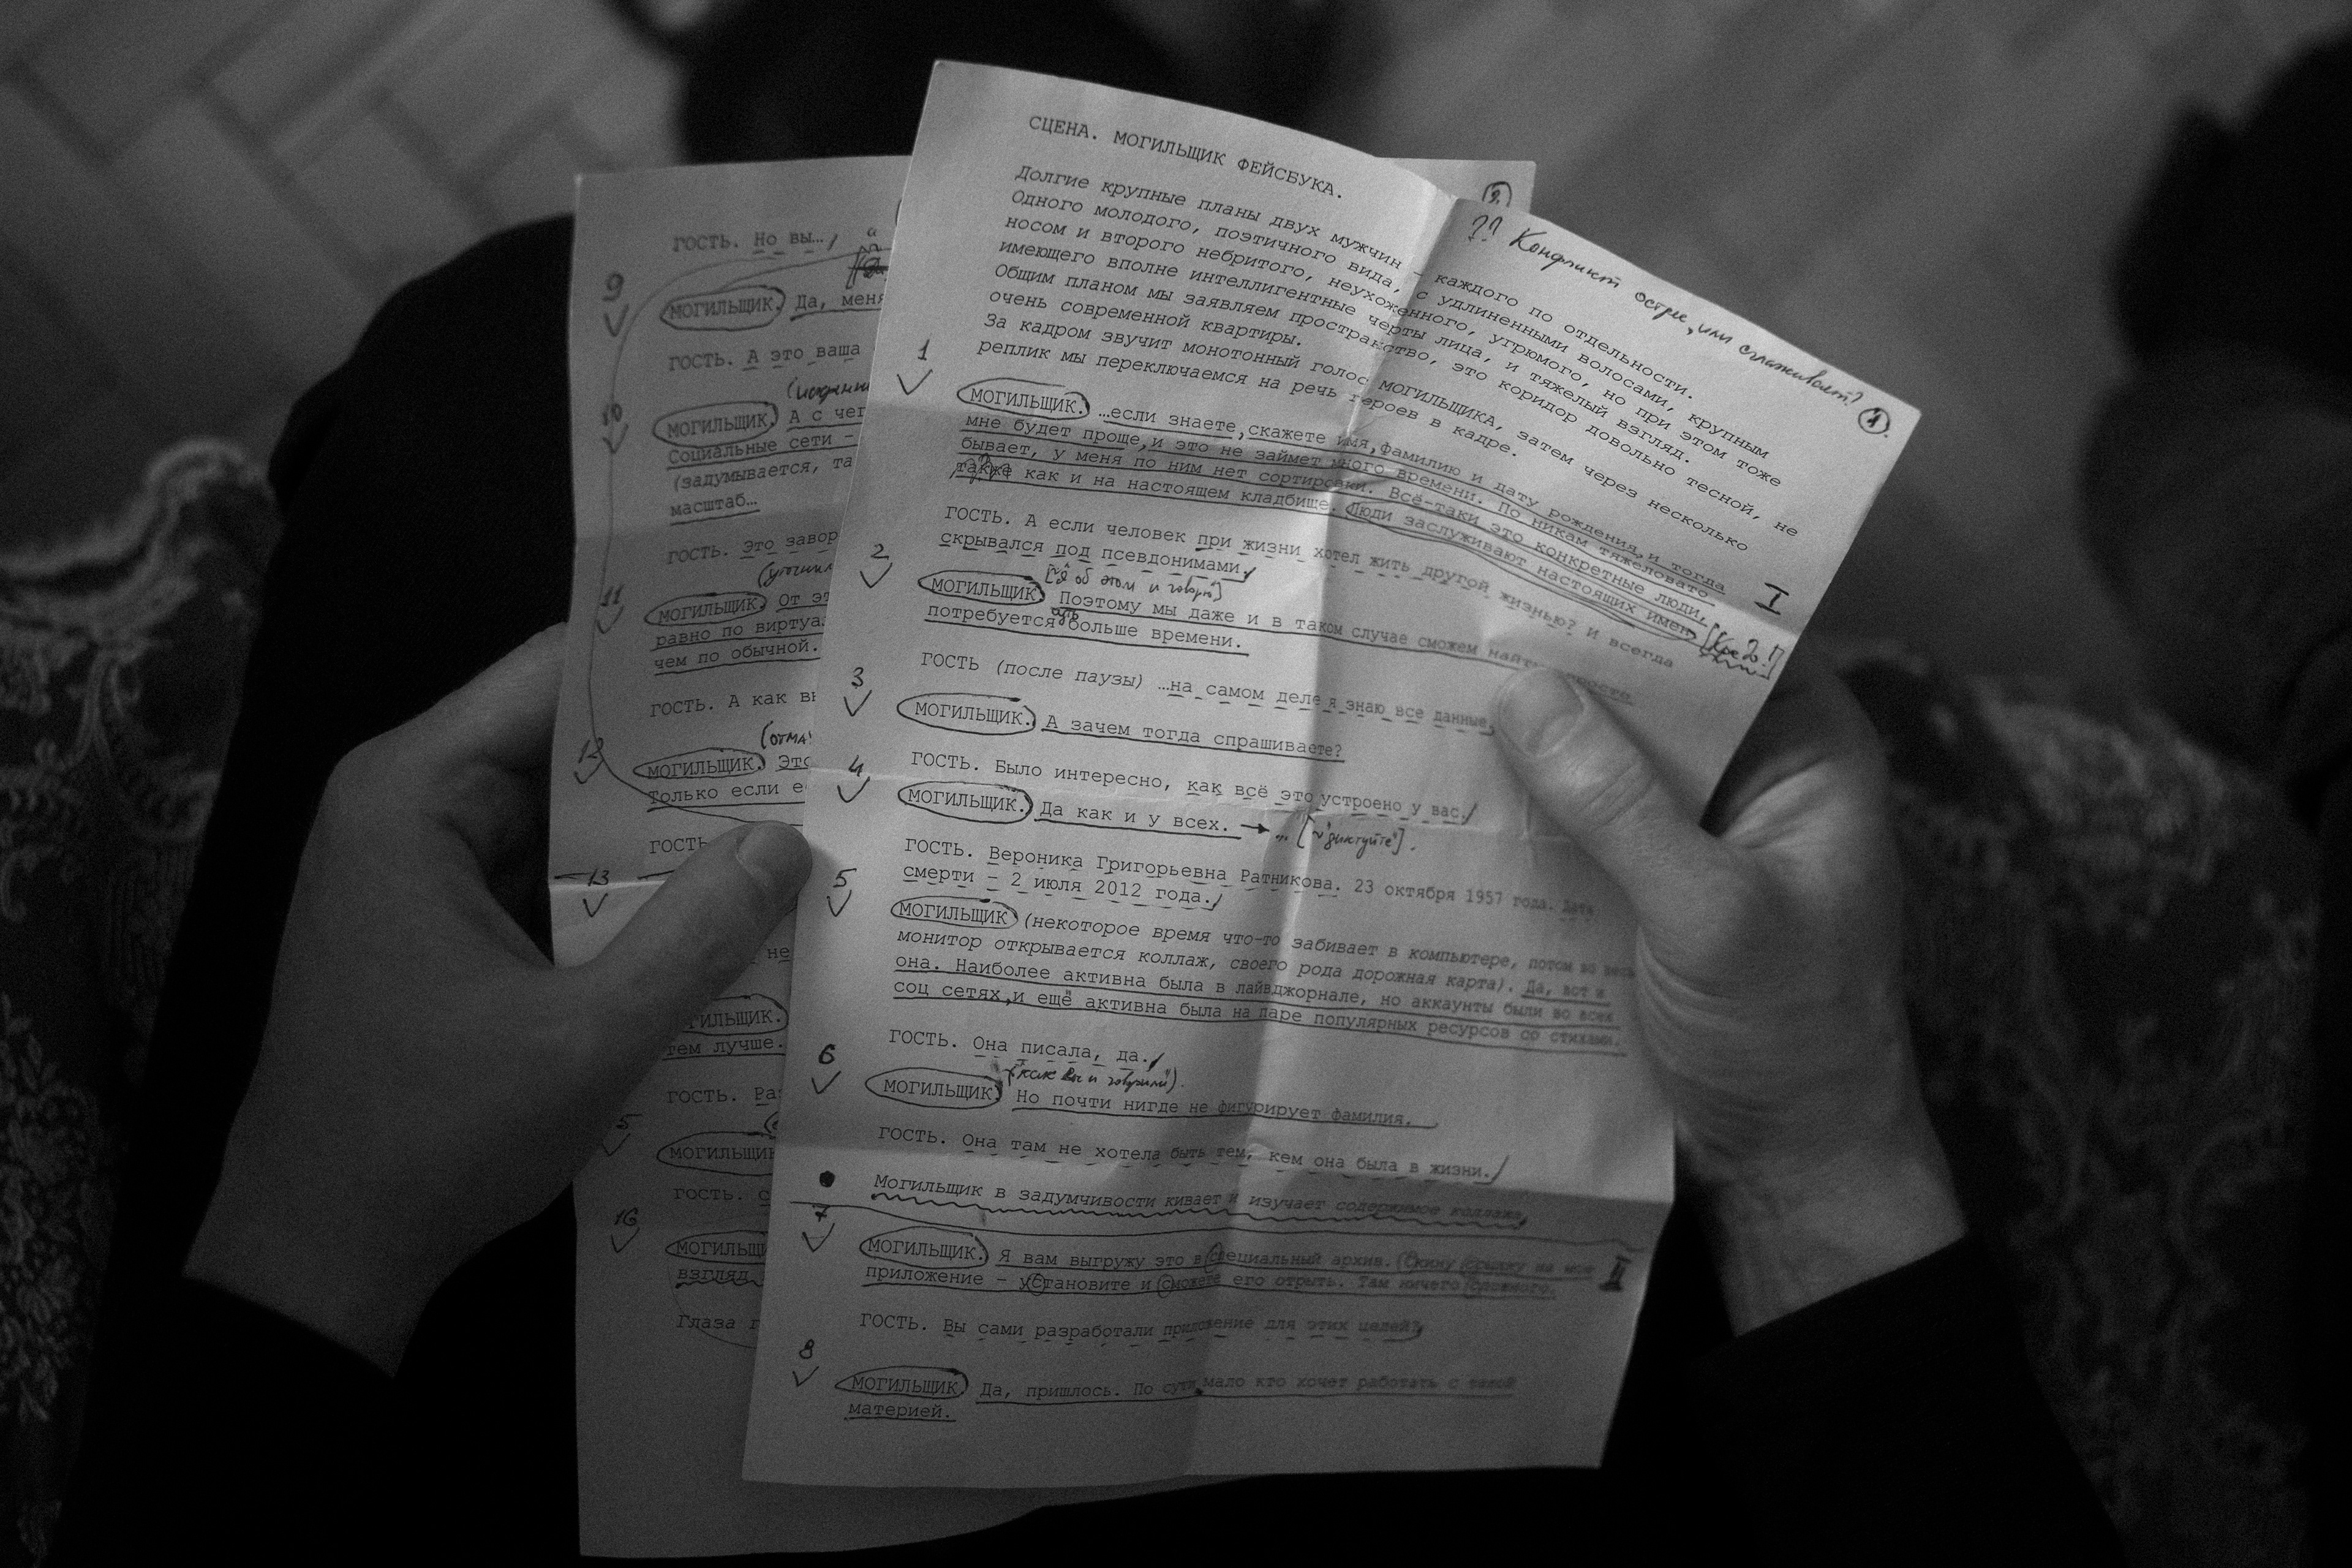 СЦЕНА. МОГИЛЬЩИК ФЕЙСБУКА.
?? Конфликт острее, или сглаживает? 1.
Долгие крупные планы двух мужчин – каждого по отдельности.
Одного молодого, поэтичного вида, с удлиненными волосами, крупным
носом и второго небритого, неухоженного, угрюмого, но при этом тоже
имеющего вполне интеллигентные черты лица, и тяжелый взгляд.
Общим планом мы заявляем пространство, это коридор довольно тесной, не
очень современной квартиры.
За кадром звучит монотонный голос МОГИЛЬЩИКА, затем через несколько
реплик мы переключаемся на речь героев в кадре.
1
МОГИЛЬЩИК. …если знаете, скажете имя, фамилию и дату рождения, и тогда
мне будет проще, и это не займет много времени. По никам тяжеловато
бывает, у меня по ним нет сортировки. Всё-таки это конкретные люди,
также как и на настоящем кладбище. Люди заслуживают настоящих имен.
I
2
ГОСТЬ. А если человек при жизни хотел жить другой жизнью? И всегда
скрывался под псевдонимами.
[~Я об этом и говорю]
МОГИЛЬЩИК. Поэтому мы даже и в таком случае сможем найти, просто
потребуется больше времени.
3
ГОСТЬ (после паузы) …на самом деле я знаю все данные.
МОГИЛЬЩИК. А зачем тогда спрашиваете?
4
ГОСТЬ. Было интересно, как всё это устроено у вас.
МОГИЛЬЩИК. Да как и у всех. → … [~"диктуйте"].
5
ГОСТЬ. Вероника Григорьевна Ратникова. 23 октября 1957 года. Дата
смерти – 2 июля 2012 года.
МОГИЛЬЩИК (некоторое время что-то забивает в компьютере, потом во весь
монитор открывается коллаж, своего рода дорожная карта). Да, вот и
она. Наиболее активна была в лайвджорнале, но аккаунты были во всех
соц сетях, и ещё активна была на паре популярных ресурсов со стихами.
6
ГОСТЬ. Она писала, да.
("как Вы и говорили").
МОГИЛЬЩИК. Но почти нигде не фигурирует фамилия.
ГОСТЬ. Она там не хотела быть тем, кем она была в жизни.
Могильщик в задумчивости кивает и изучает содержимое коллажа.
7
МОГИЛЬЩИК. Я вам выгружу это в специальный архив. Скину ссылку на мое
приложение – установите и сможете его отрыть. Там ничего сложного.
II
ГОСТЬ. Вы сами разработали приложение для этих целей?
8
МОГИЛЬЩИК. Да, пришлось. По сути мало кто хочет работать с такой
материей.
2.
ГОСТЬ. Но вы…
9
МОГИЛЬЩИК. Да, меня
ГОСТЬ. А это ваша
10
МОГИЛЬЩИК. А с чег
Социальные сети –
(задумывается, та
масштаб…
ГОСТЬ. Это завор
11
МОГИЛЬЩИК. От эт
равно по виртуа
чем по обычной.
ГОСТЬ. А как вы
12
МОГИЛЬЩИК. Это
Только если е
ГОСТЬ
13
не
ГИЛЬЩИК.
тем лучше.
ГОСТЬ. Раз
5
МОГИЛЬЩИК
ГОСТЬ. С
16
МОГИЛЬЩИ
взгляд
Глаза г